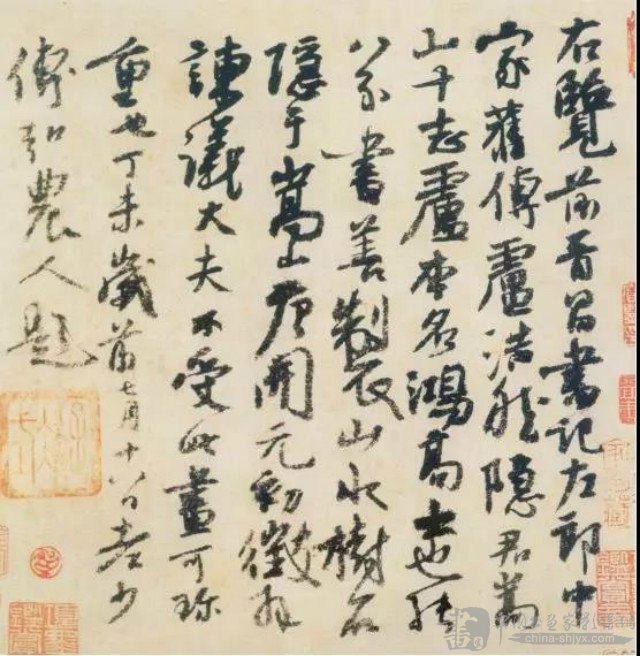 右覽前晉昌書記左郎中
家舊傳盧浩然隱君嵩
山十志盧本名鴻高士也能
八分書善製山水樹石
隱于嵩山唐開元初徵拜
諫議大夫不受此畫可珍
重也丁未歲前七月十八日老少
傅弘農人題
china-shjyx.com